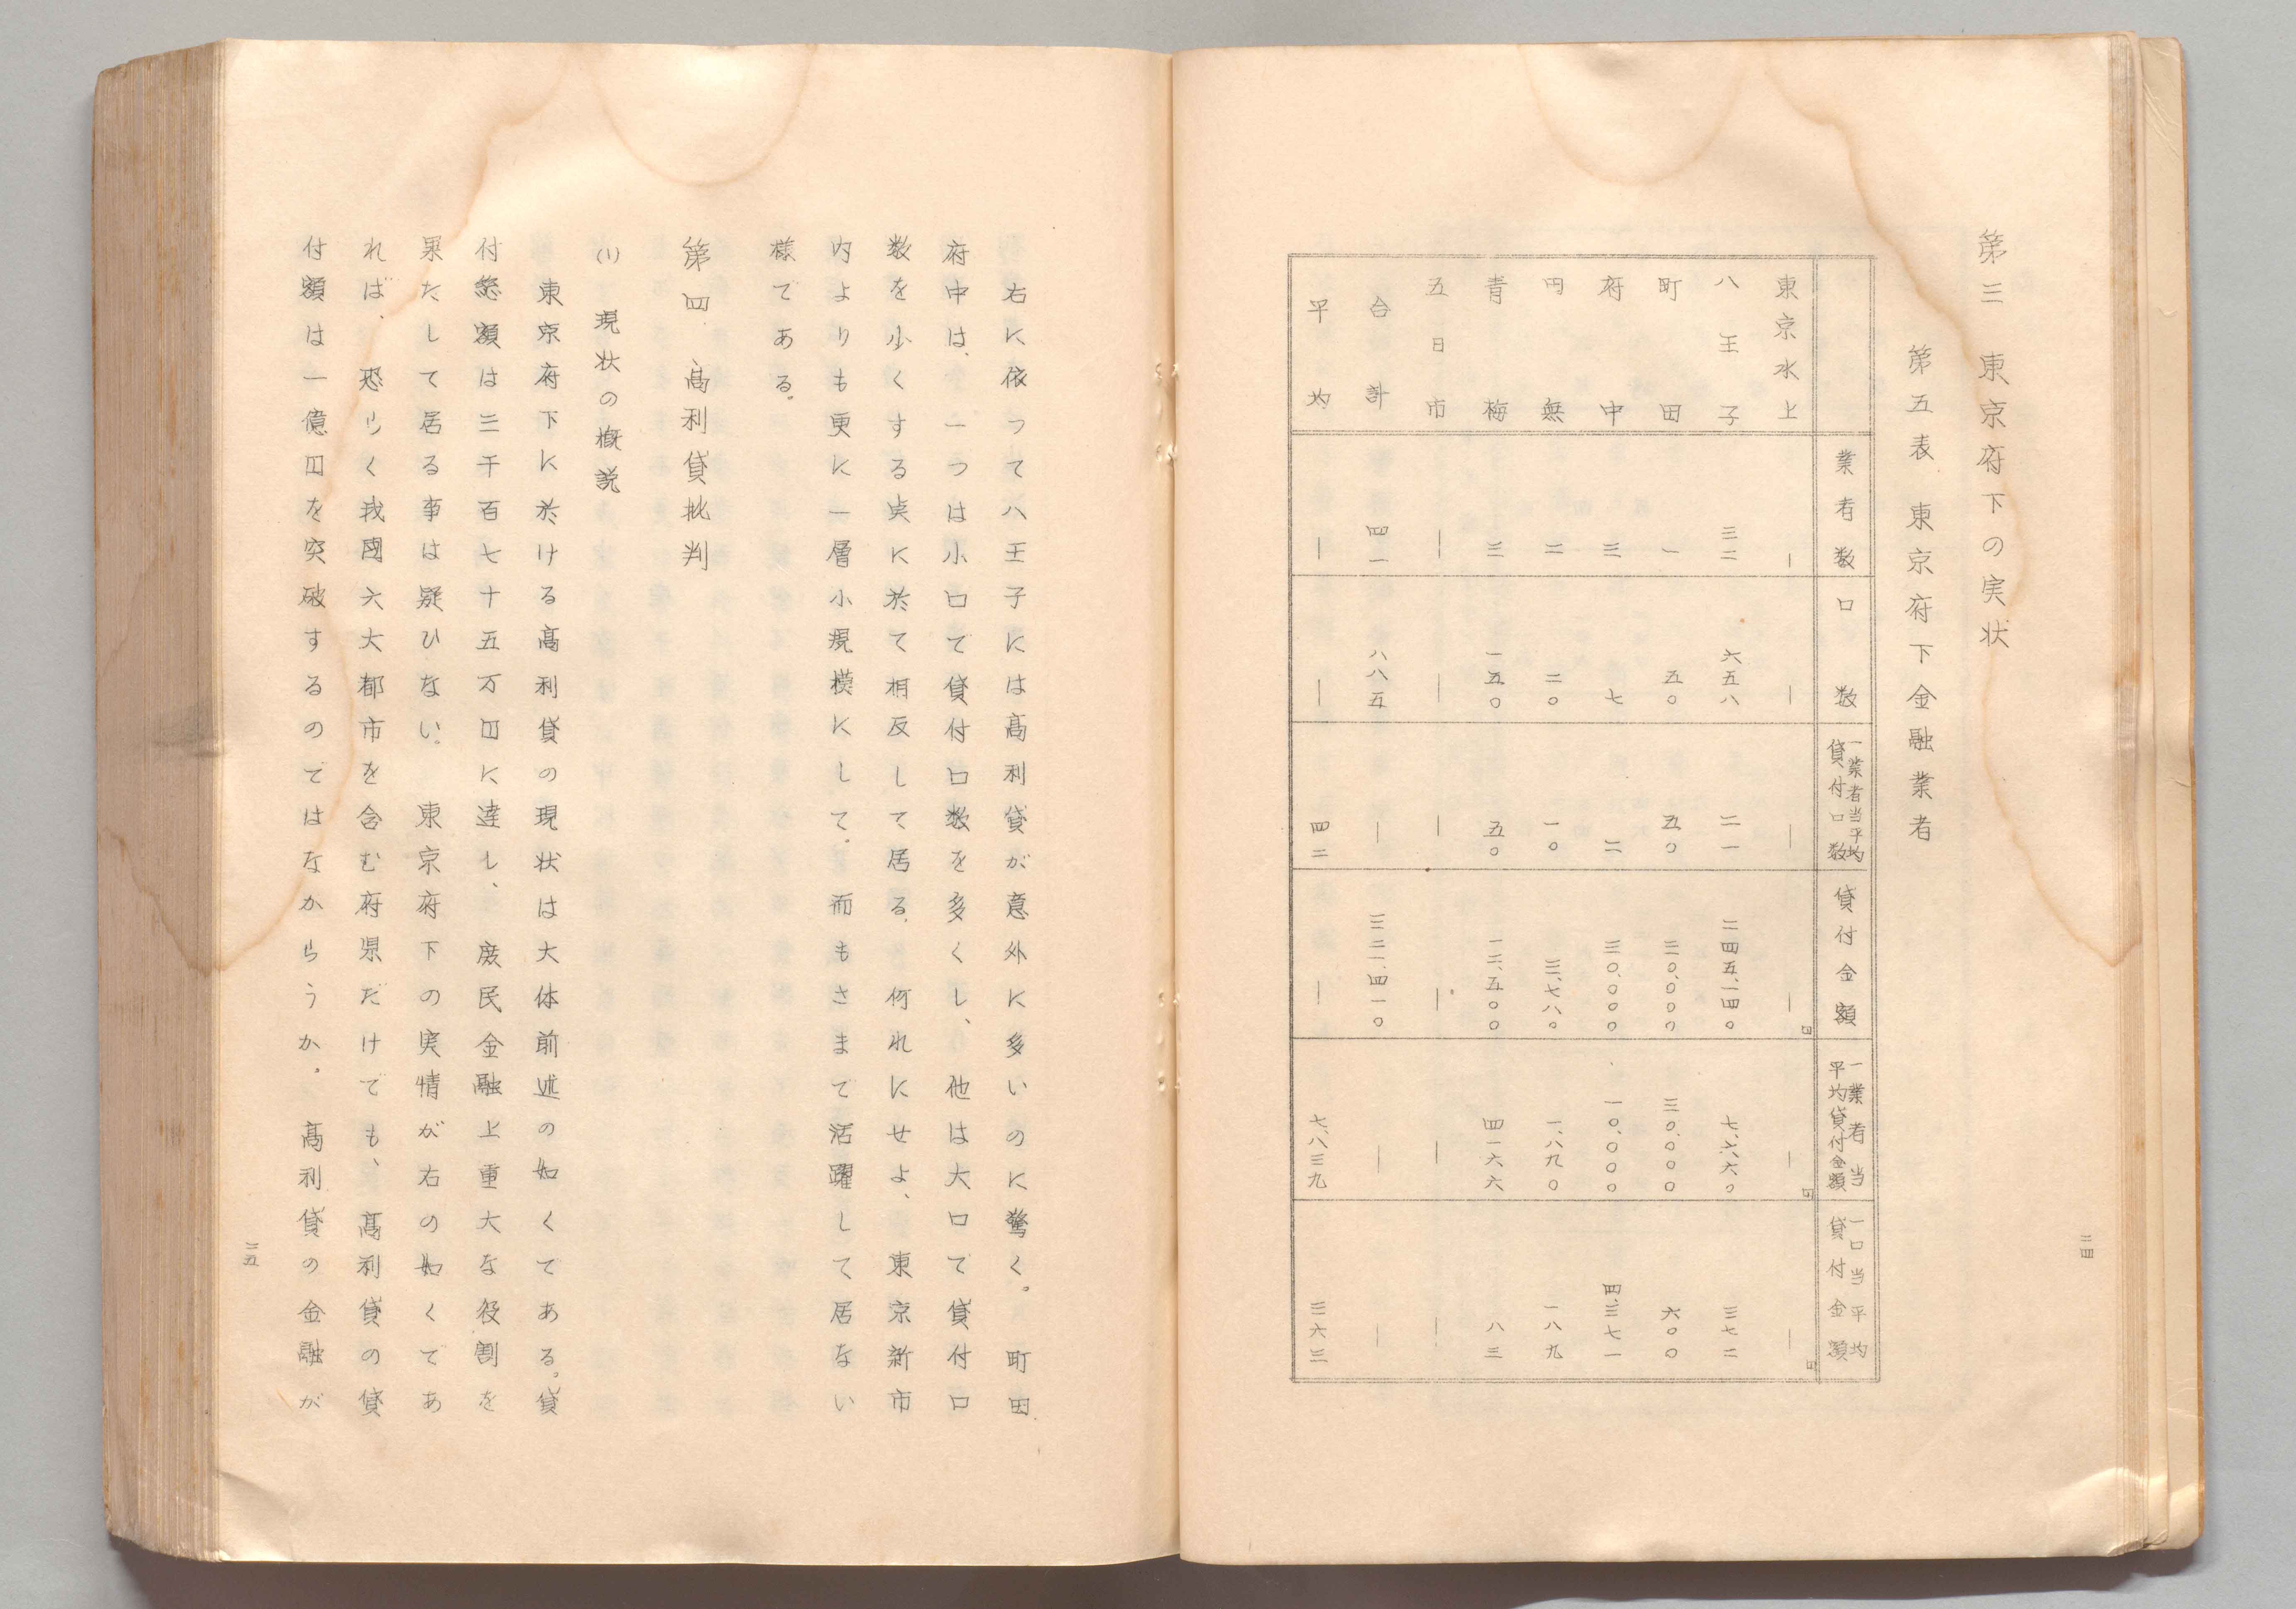 二四
第三　東京府下の実状
第五表　東京府下金融業者
業者数　口数　一業者当平均貸付口数　貸付金額　一業者当平均貸付金額　一口当平均貸付金額
東京水上　―　―　―　―円　―円　―円
八王子　三二　六五八　二一　二四五、一四〇　七、六六〇　三七二
町田　一　五〇　五〇　三〇、〇〇〇　三〇、〇〇〇　六〇〇
府中　三　七　二　三〇、〇〇〇　一〇、〇〇〇　四、三七一
田無　二　二〇　一〇　三、七八〇　一、八九〇　一八九
青梅　三　一五〇　五〇　一二、五〇〇　四一六六　八三
五日市　―　―　―　―　―　―
合計　四一　八八五　―　三二一、四一〇　―　―
平均　―　―　四二　―　七、八三九　三六三
右に依って八王子には高利貸が意外に多いのに驚く。町田
府中は、一つは小口で貸付口数を多くし、他は大口で貸付口
数を少くする点に於て相反して居る。何れにせよ、東京新市
内よりも更に一層小規模にして。而もさまで活躍して居ない
様である。
第四　高利貸批判
(1)　現状の概説
東京府下に於ける高利貸の現状は大体前述の如くである。貸
付総額は三千百七十五万円に達し、庶民金融上重大な役割を
果たして居る事は疑ひない。東京府下の実情が右の如くであ
れば、恐らく我國六大都市を含む府県だけでも、高利貸の貸
付額は一億円を突破するのではなからうか。高利貸の金融が
二五